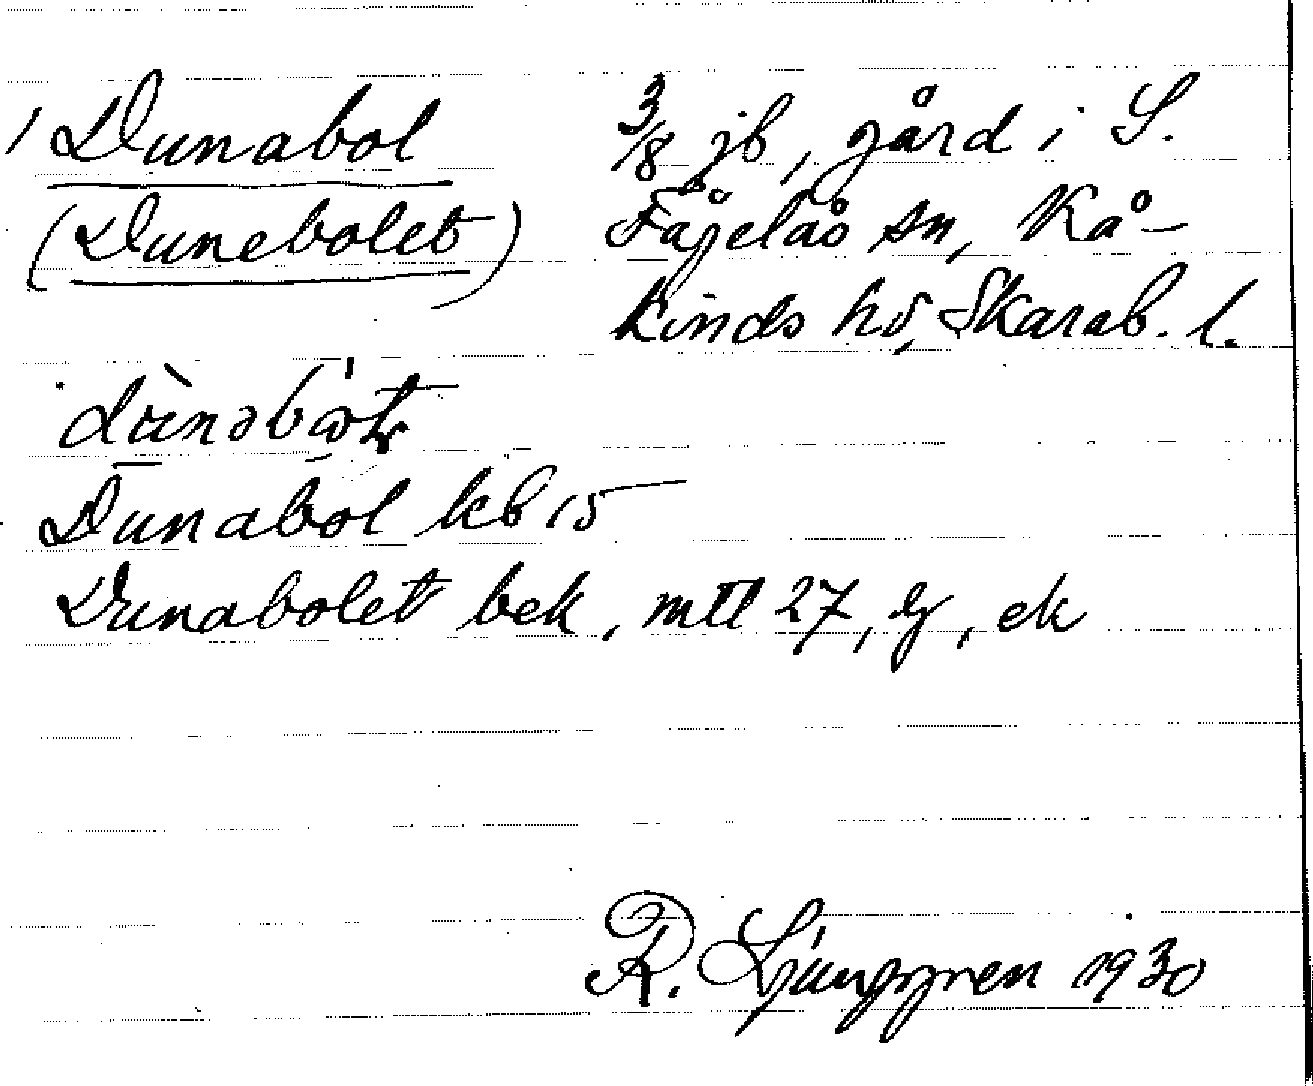 1 Dunabol 3/8 jb, gård i S.
(Dunebolet) Fågelås sn, Kå-
kinds hd, Skarab. l.
Dunabol kb 15
Dunabolet bek, mtl 27, gj, ek
R. Ljunggren 1930